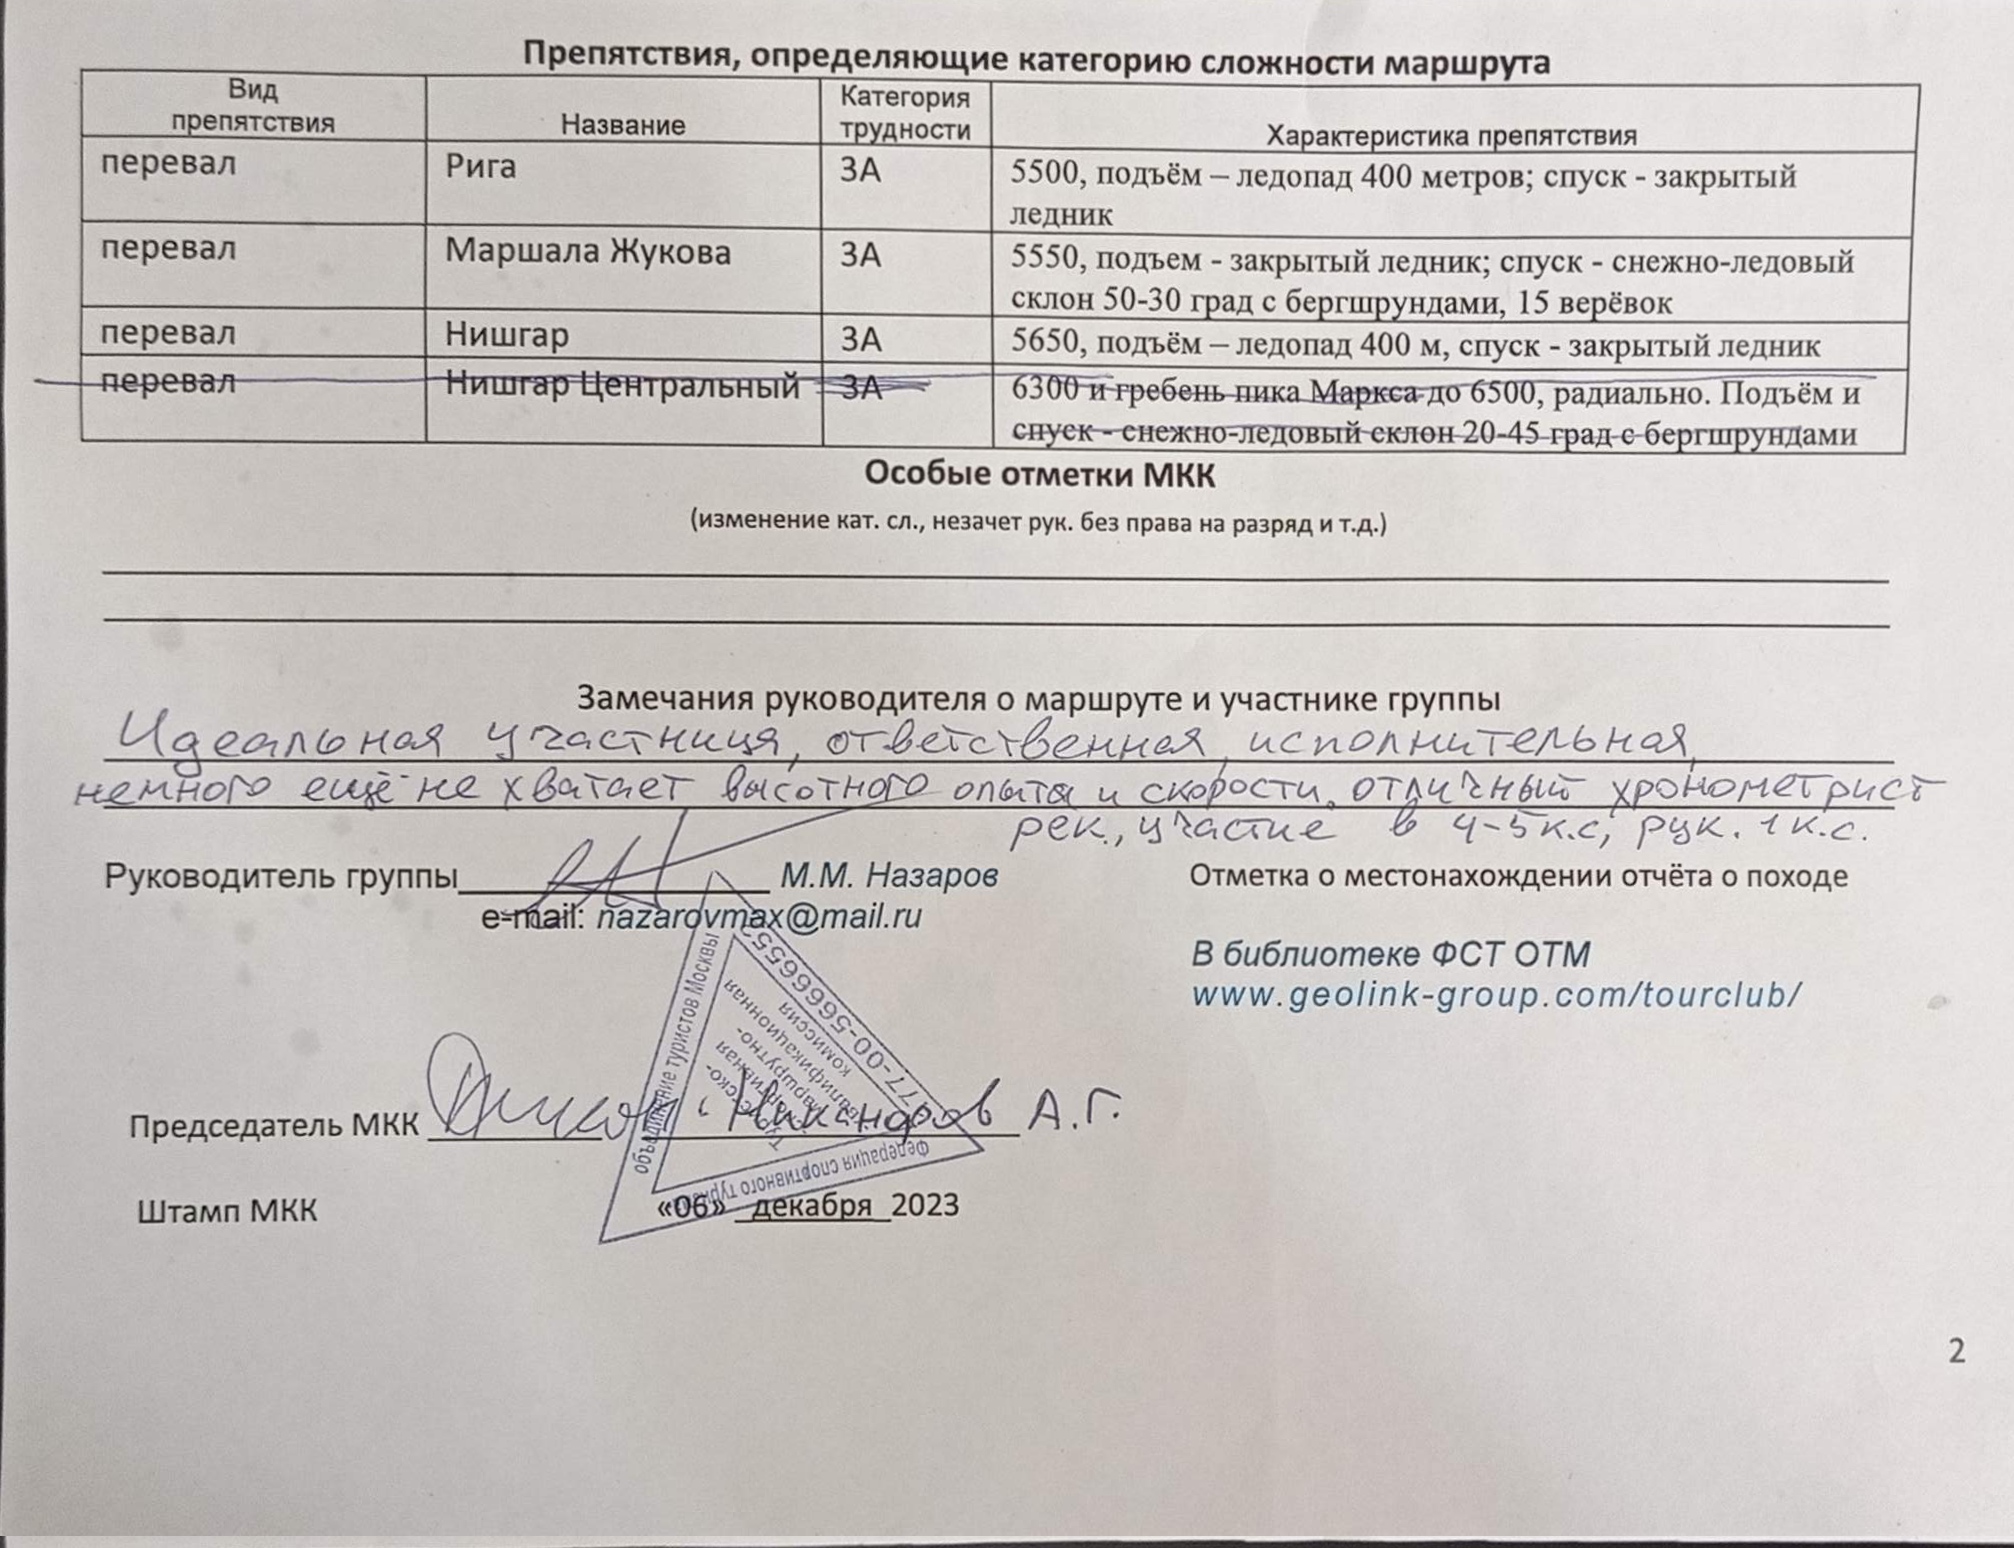 Препятствия, определяющие категорию сложности маршрута
Вид препятствия Название Категория трудности Характеристика препятствия
перевал Рига 3А 5500, подъём – ледопад 400 метров; спуск - закрытый
ледник
перевал Маршала Жукова 3А 5550, подъем - закрытый ледник; спуск - снежно-ледовый
склон 50-30 град с бергшрундами, 15 верёвок
перевал Нишгар 3А 5650, подъём – ледопад 400 м, спуск - закрытый ледник
перевал Нишгар Центральный 3А 6300 и гребень пика Маркса до 6500, радиально. Подъём и
спуск - снежно-ледовый склон 20-45 град с бергшрундами
Особые отметки МКК
(изменение кат. сл., незачет рук. без права на разряд и т.д.)
Замечания руководителя о маршруте и участнике группы
Идеальная участница, ответственная, исполнительная,
немного ещё не хватает высотного опыта и скорости, отличный хронометрист
рек., участие в 4-5 к.с, рук. 1 к.с.
Руководитель группы М.М. Назаров
e-mail: nazarovmax@mail.ru
Отметка о местонахождении отчёта о походе
В библиотеке ФСТ ОТМ
www.geolink-group.com/tourclub/
объединение туристов Москвы
177-00-56666555
Федерация спортивного туризма
квалификационная
комиссия
Председатель МКК Никаноров А.Г.
Штамп МКК «06» _декабря_2023
2